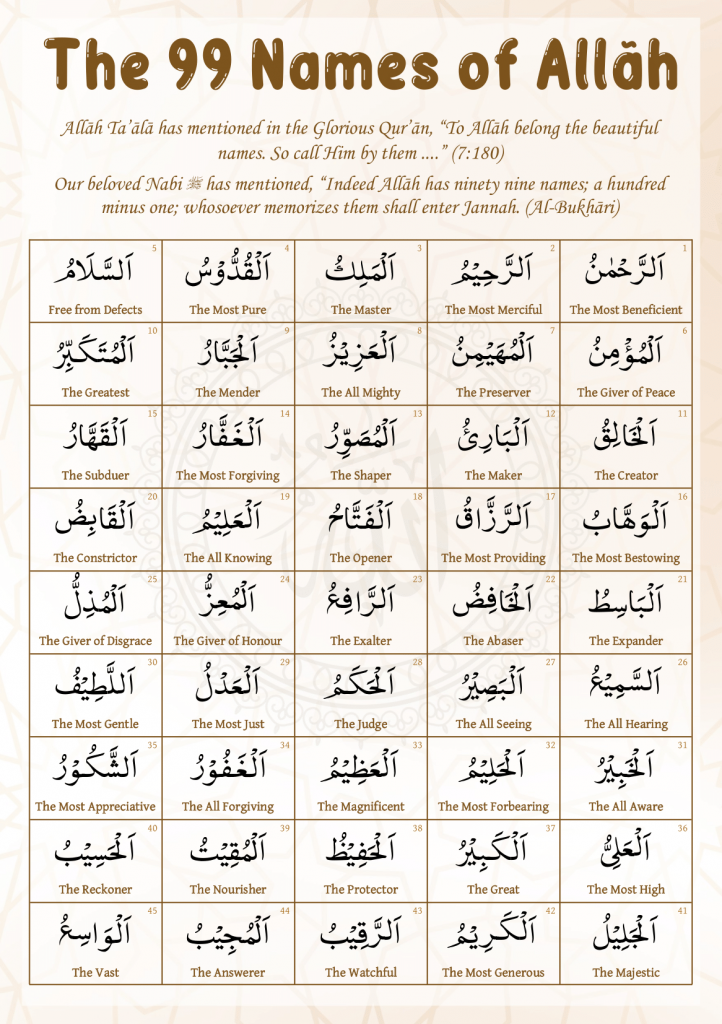 The 99 Names of Allāh
Allāh Ta’ālā has mentioned in the Glorious Qur’ān, “To Allāh belong the beautiful
names. So call Him by them ....” (7:180)
Our beloved Nabi ﷺ has mentioned, “Indeed Allāh has ninety nine names; a hundred
minus one; whosoever memorizes them shall enter Jannah. (Al-Bukhāri)
1
اَلرَّحْمٰنُ
The Most Beneficient
2
اَلرَّحِيْمُ
The Most Merciful
3
اَلْمَلِكُ
The Master
4
اَلْقُدُّوْسُ
The Most Pure
5
اَلسَّلَامُ
Free from Defects
6
اَلْمُؤْمِنُ
The Giver of Peace
7
اَلْمُهَيْمِنُ
The Preserver
8
اَلْعَزِيْزُ
The All Mighty
9
اَلْجَبَّارُ
The Mender
10
اَلْمُتَكَبِّرُ
The Greatest
11
اَلْخَالِقُ
The Creator
12
اَلْبَارِئُ
The Maker
13
اَلْمُصَوِّرُ
The Shaper
14
اَلْغَفَّارُ
The Most Forgiving
15
اَلْقَهَّارُ
The Subduer
16
اَلْوَهَّابُ
The Most Bestowing
17
اَلرَّزَّاقُ
The Most Providing
18
اَلْفَتَّاحُ
The Opener
19
اَلْعَلِيْمُ
The All Knowing
20
اَلْقَابِضُ
The Constrictor
21
اَلْبَاسِطُ
The Expander
22
اَلْخَافِضُ
The Abaser
23
اَلرَّافِعُ
The Exalter
24
اَلْمُعِزُّ
The Giver of Honour
25
اَلْمُذِلُّ
The Giver of Disgrace
26
اَلسَّمِيْعُ
The All Hearing
27
اَلْبَصِيْرُ
The All Seeing
28
اَلْحَكَمُ
The Judge
29
اَلْعَدْلُ
The Most Just
30
اَللَّطِيْفُ
The Most Gentle
31
اَلْخَبِيْرُ
The All Aware
32
اَلْحَلِيْمُ
The Most Forbearing
33
اَلْعَظِيْمُ
The Magnificent
34
اَلْغَفُوْرُ
The All Forgiving
35
اَلشَّكُوْرُ
The Most Appreciative
36
اَلْعَلِيُّ
The Most High
37
اَلْكَبِيْرُ
The Great
38
اَلْحَفِيْظُ
The Protector
39
اَلْمُقِيْتُ
The Nourisher
40
اَلْحَسِيْبُ
The Reckoner
41
اَلْجَلِيْلُ
The Majestic
42
اَلْكَرِيْمُ
The Most Generous
43
اَلرَّقِيْبُ
The Watchful
44
اَلْمُجِيْبُ
The Answerer
45
اَلْوَاسِعُ
The Vast